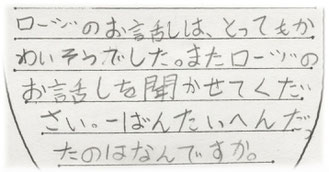 ロージのお話しは、とってもか
わいそうでした。またロージの
お話しを聞かせてくだ
さい。一ばんたいへんだっ
たのはなんですか。